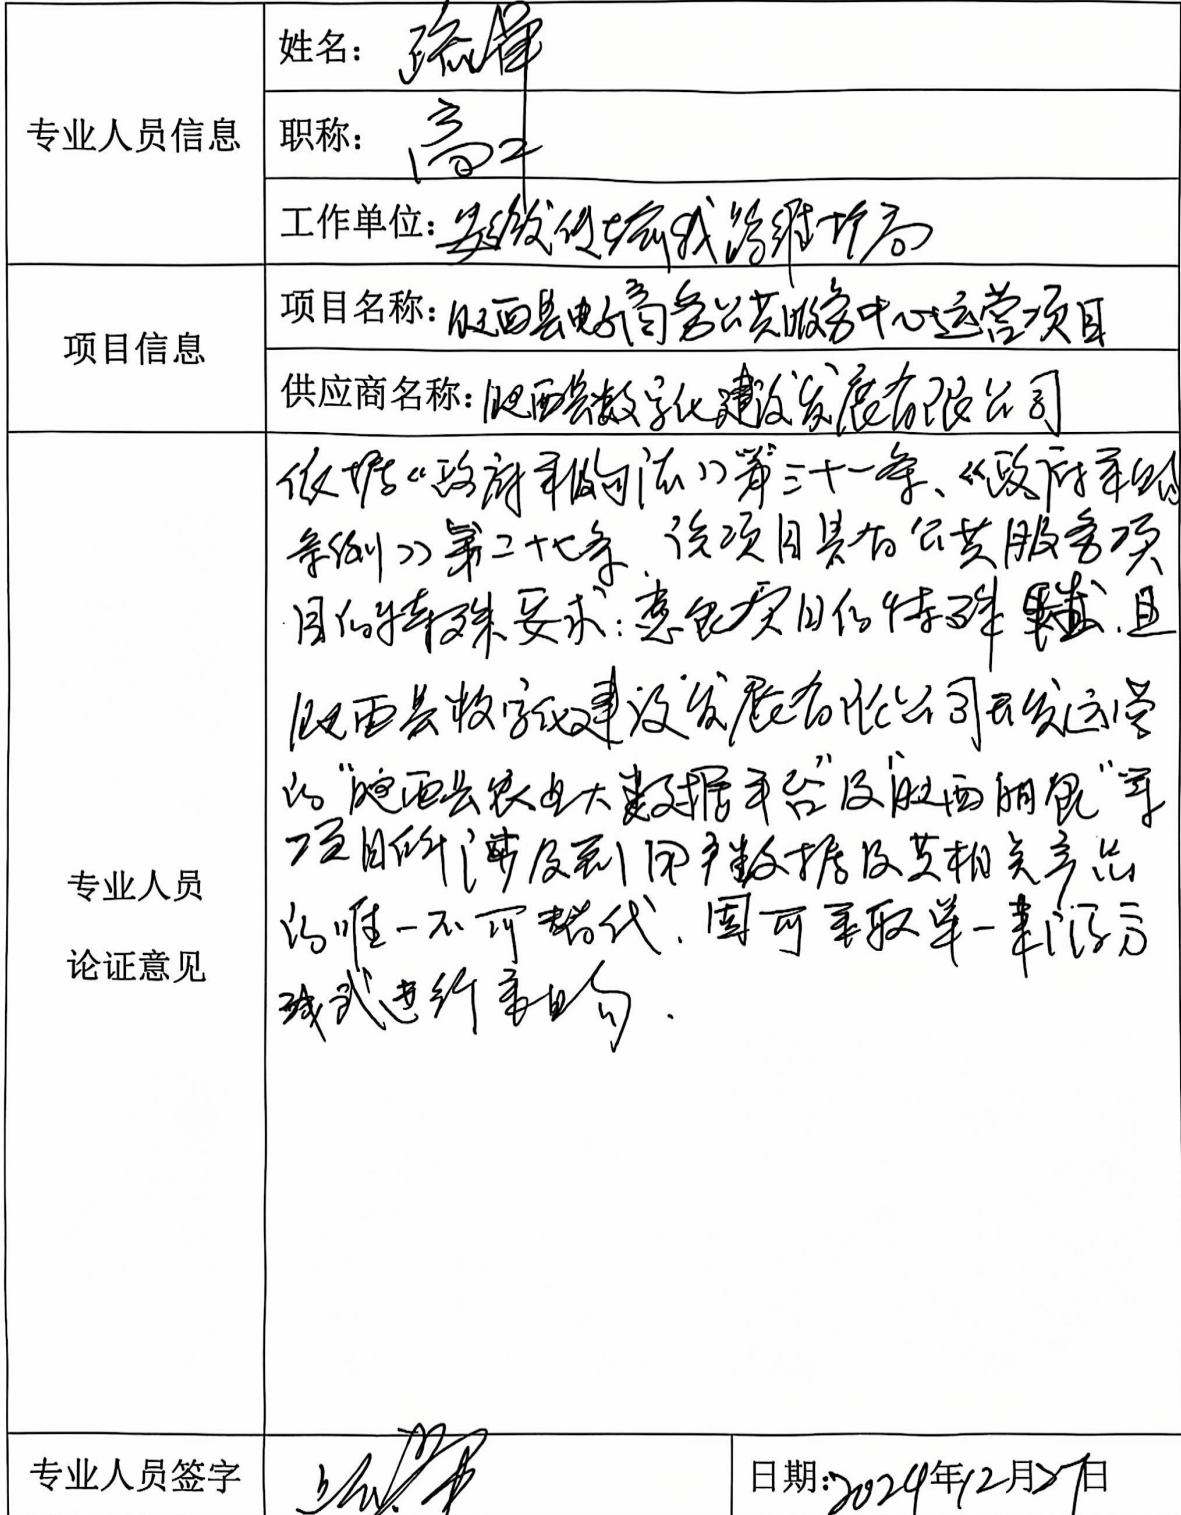 专业人员信息
姓名：
职称：高工
工作单位：安徽
项目信息
项目名称：肥西县电子商务公共服务中心运营项目
供应商名称：肥西县数字化建设发展有限公司
专业人员
论证意见
依据《政府采购法》第三十一条、《政府采购
条例》第二十七条，该项目具有公共服务项
目的特殊要求：意 项目的特殊 ，且
肥西县数字化建设发展有限公司开发运营
的“肥西县农业大数据平台”及“肥西 ”等
项目所涉及到用户数据及其相关产品
的唯一不可替代，固可采取单一来源方
式进行采购．
专业人员签字
日期：2024年12月27日